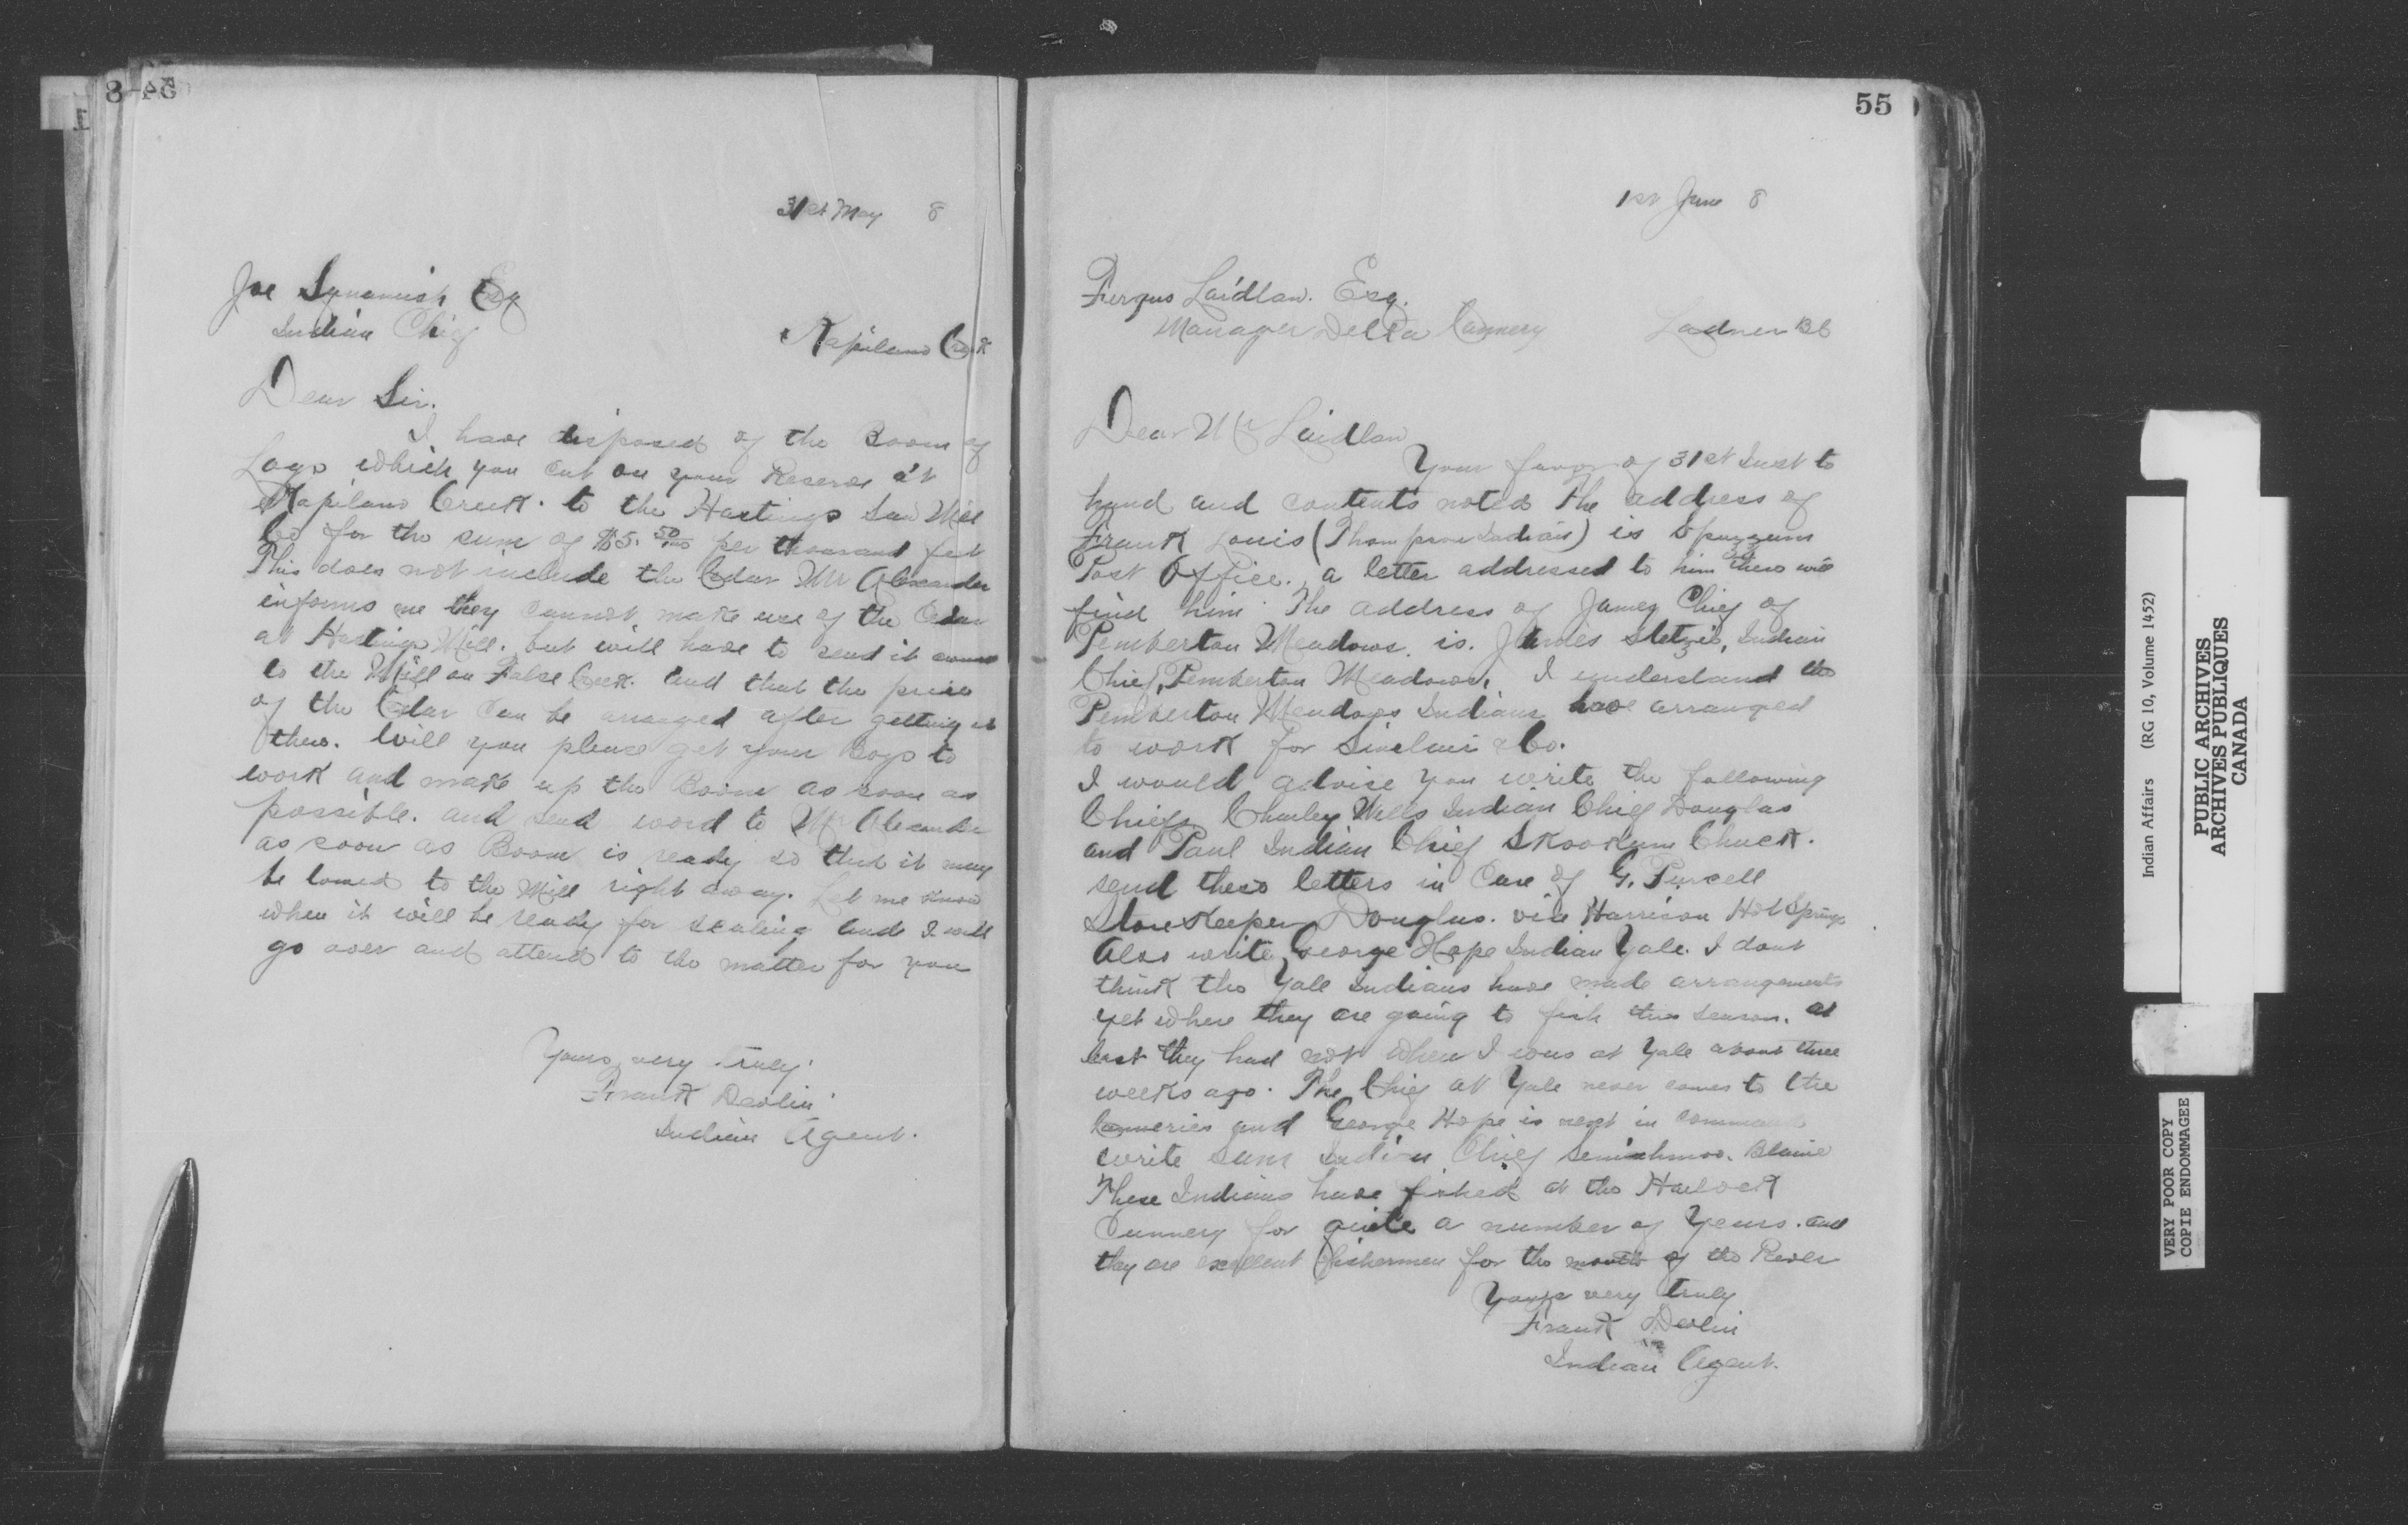 54
31st May 8
Joe Squamish Esq
Indian Chief
Kapilano Creek
Dear Sir.
I have disposed of the Boom of
Logs which you cut on your Reserve at
Kapilano Creek. to the Hastings Saw Mill
Co for the sum of $5. 50/100 per thousand feet
This does not include the Cedar Mr Alexander
informs me they cannot make use of the Cedar
at Hastings Mill. but will have to send it
to the Mill on False Creek. and that the price
of the Cedar can be arranged after getting it
there. Will you please get your Boys to
work and make up the Boom as soon as
possible. and send word to Mr Alexander
as soon as Boom is ready so that it may
be towed to the Mill right away. Let me know
when it will be ready for scaling and I will
go over and attend to the matter for you
Yours very truly
Frank Devlin
Indian Agent.
55
1st June 8
Fergus Laidlaw. Esq.
Manager Delta Cannery
Ladner BC
Dear Mr Laidlaw
Your favor of 31st Inst to
hand and contents noted The address of
Frank Louis (Thompson Indian) is Spuzzum
Post Office. a letter addressed to him there will
find him. The address of James Chief of
Pemberton Meadows. is. James, Indian
Chief, Pemberton Meadows, I understand the
Pemberton Meadows Indians have arranged
to work for Sinclair & Co.
I would advise you write the following
Chiefs Charley Wells Indian Chief Douglas
and Paul Indian Chief Skookum Chuck.
send these letters in Care of G. Purcell
Store Keeper Douglas. via Harrison Hot Springs
Also write George Hope Indian Yale. I dont
think the Yale Indians have made arrangements
yet where they are going to fish this season. at
least they had not when I was at Yale about three
weeks ago. The Chief at Yale never comes to the
Canneries and George Hope is next in command
write Sam Indian Chief Semiahmoo. Blaine
These Indians have fished at the Harlock
Cannery for quite a number of Years. and
they are excellent fishermen for the mouth of the River
Yours very truly
Frank Devlin
Indian Agent.
Indian Affairs (RG 10, Volume 1452)
PUBLIC ARCHIVES
ARCHIVES PUBLIQUES
CANADA
VERY POOR COPY
COPIE ENDOMMAGEE